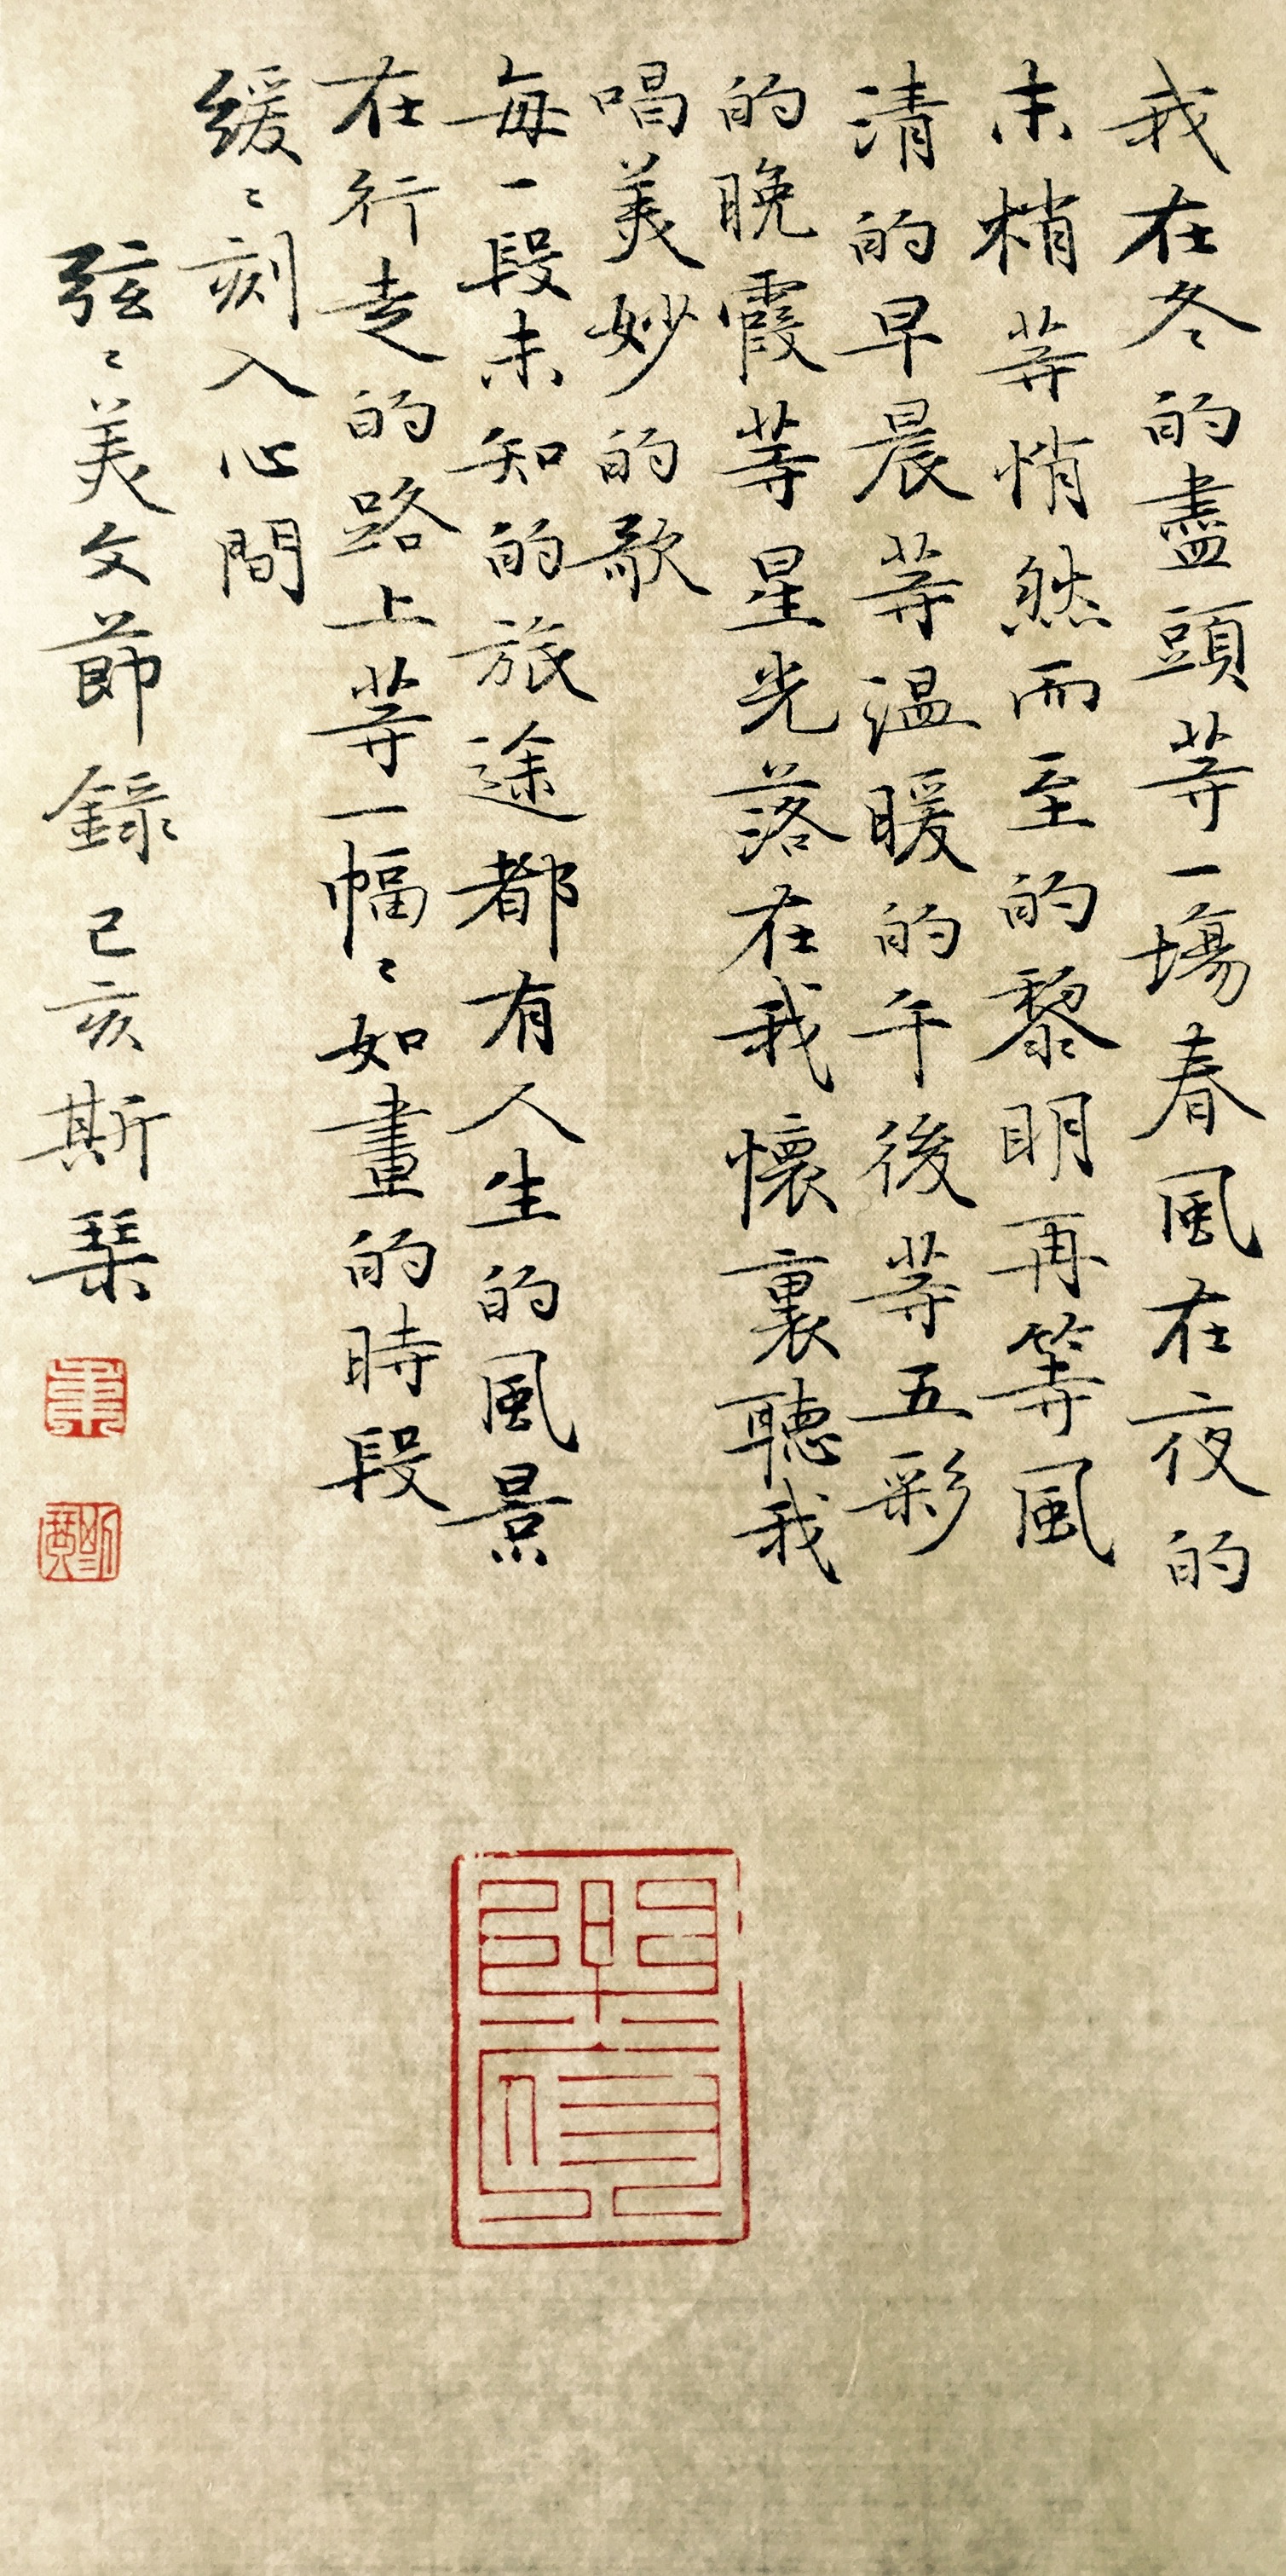 我在冬的盡頭等一場春風在夜的
末梢等悄然而至的黎明再等風
清的早晨等温暖的午後等五彩
的晚霞等星光落在我懷裏聽我
唱美妙的歌
每一段未知的旅途都有人生的風景
在行走的路上等一幅〻如畫的時段
緩〻刻入心間
弦〻美文節錄己亥斯琹